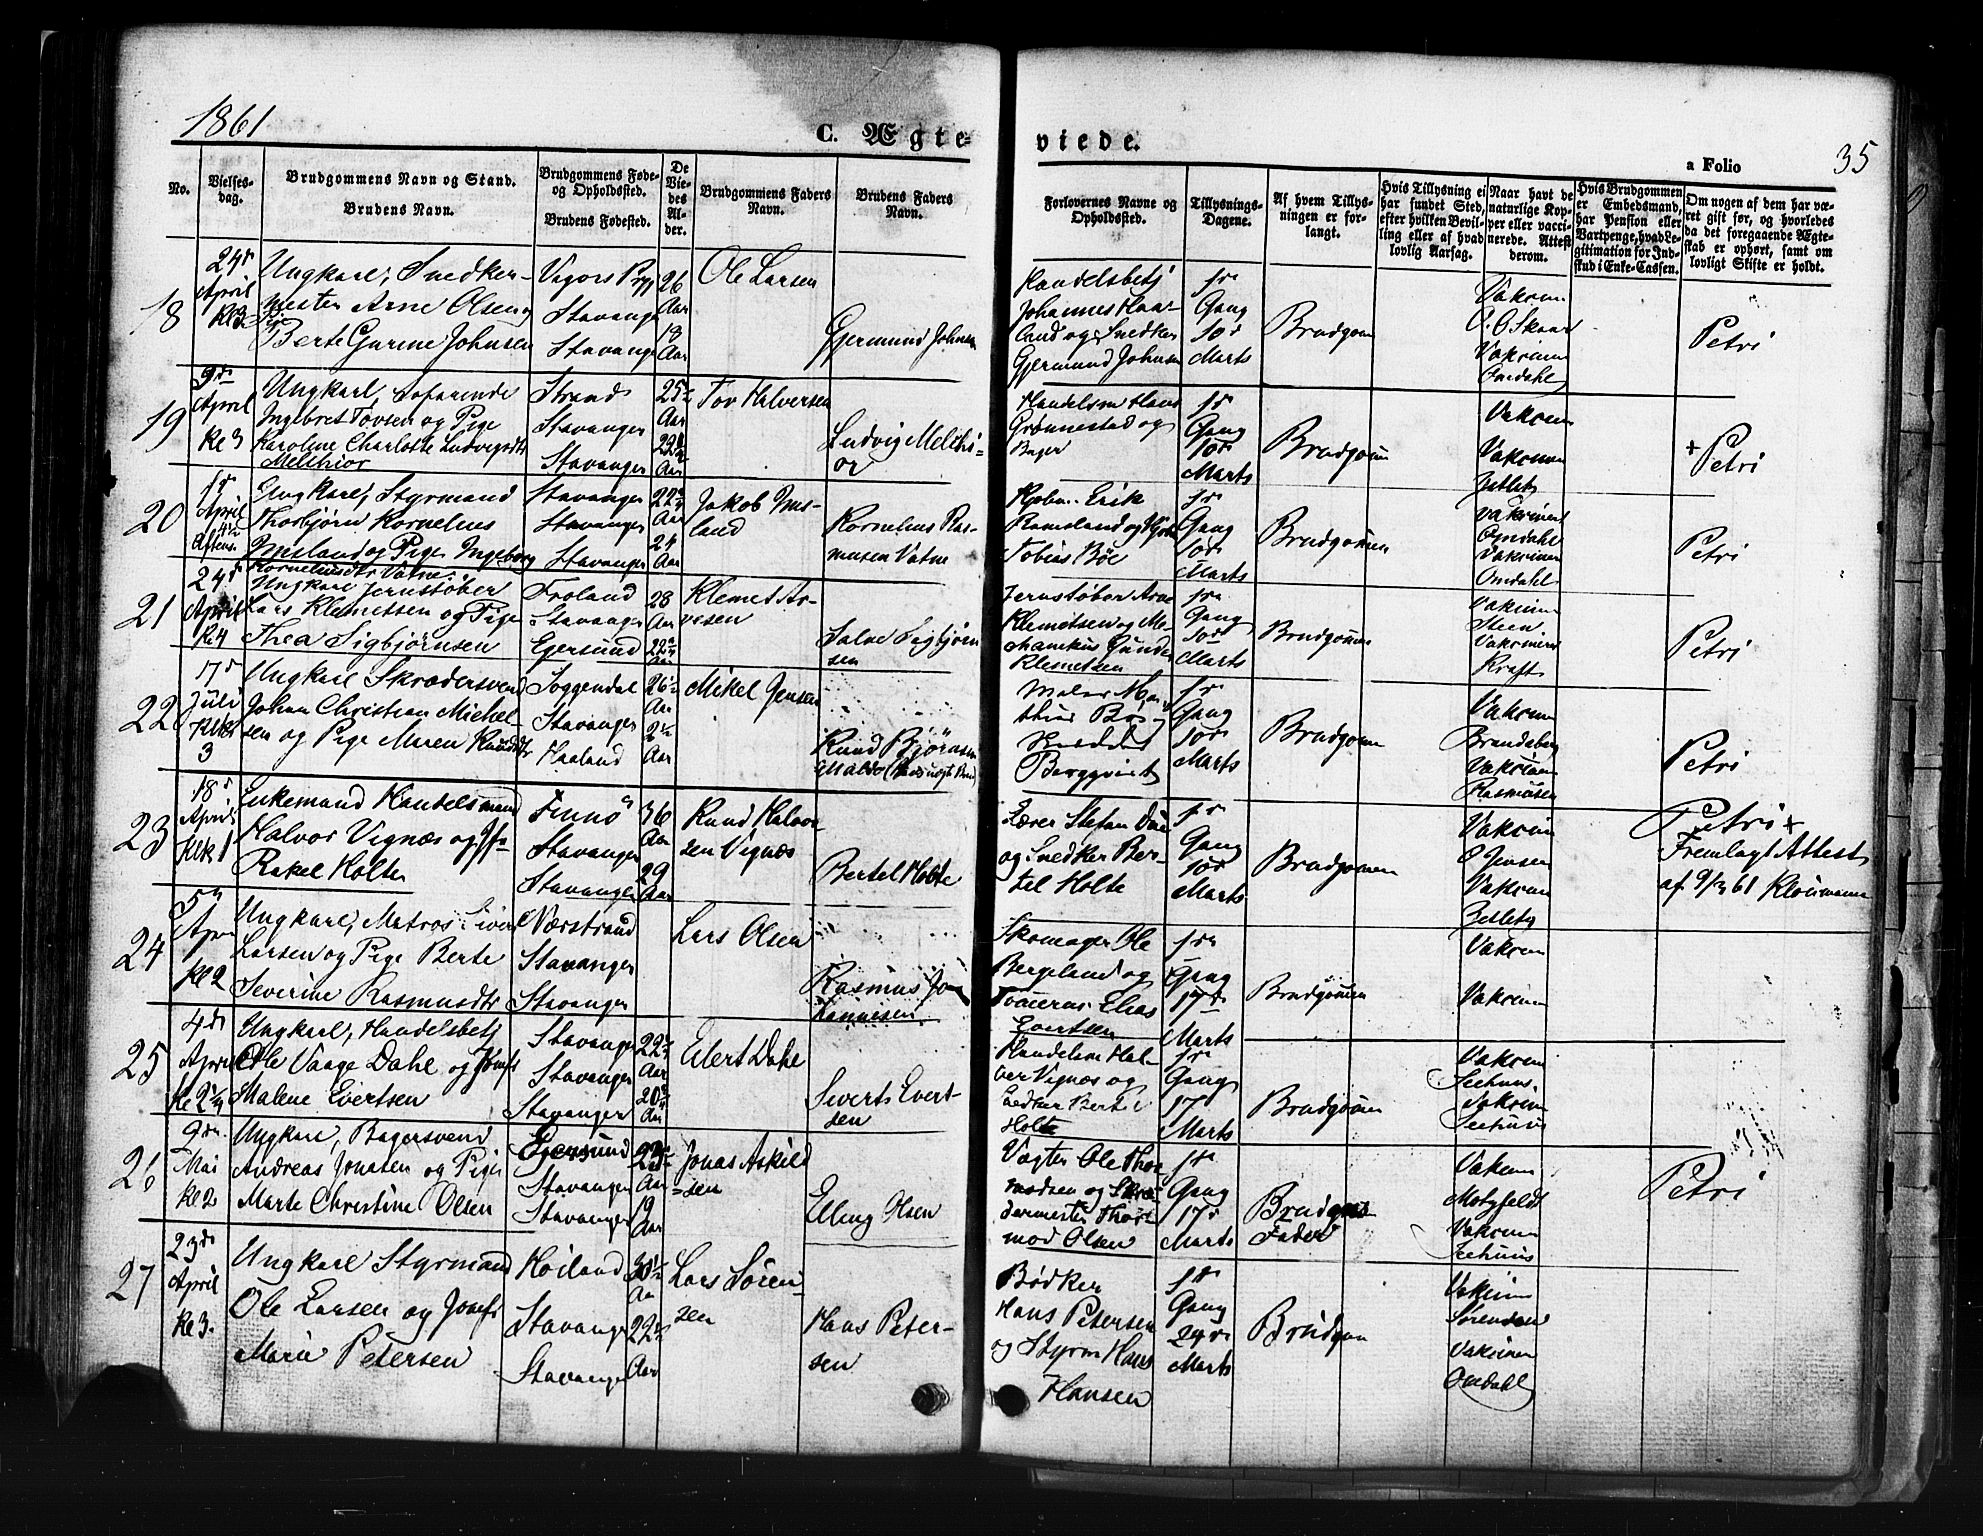 1861
C. Ægte-
viede.
a Folio
35
No.
Vielses-
dag.
Brudgommens Navn og Stand.
Brudens Navn.
Brudgommens Føde-
og Opholdssted.
Brudens Fødested.
De
Vie-
des
Al-
der.
Brudgommens Faders
Navn.
Brudens Faders
Navn.
Forlovernes Navne og
Opholdssted.
Tillysnings-
Dagene.
Af hvem Tillys-
ningen er for-
langt.
Hvis Tillysning ei
har fundet Sted,
efter hvilken Bevil-
ling eller af hvad
lovlig Aarsag.
Naar havt de
naturlige Kop-
per eller vacci-
nerede. Attest
derom.
Hvis Brudgommen
er Embedsmand,
har Pension eller
Vartpenge, hvad Le-
gitimation for Ind-
skud i Enke-Cassen.
Om nogen af dem har væ-
ret gift før, og hvorledes
da det foregaaende Ægte-
skab er ophørt, samt om
lovligt Skifte er holdt.
18
24de
April
Kl 3
Ungkarl, Snedker-
mester Arne Olsen og
Pige
Berte Gurine Johnsen
Stavanger
Stavanger
26
Aar
19
Aar
Ole Larsen
Gjermund Johnsen
Handelsbetj
Johannes Haa-
land og Snedker
Gjermund Johnsen
1ste
Gang
10de
Marts
Brudgom
Vakcin
O. O. Skaar
Vakcinen
Omdahl
Petri
19
9de
April
Kl 3
Ungkarl, Søfarende
Ingebret Tovsen og Pige
Karoline Charlotte Ludvigsdtr
Melchior
Strand
Stavanger
Stavanger
25
Aar
22
Aar
Tov Halversen
Ludvig Melchi-
or
Handelsm Hans
Grønnestad og
Bager
1ste
Gang
10de
Marts
Brudgom
Vakcin
Vakcinen
+ Petri
20
1ste
April
4½
Aften
Ungkarl, Styrmand
Thorbjørn Kornelius
Imsland og Pige Ingeborg
Korneliusdtr Vatne
Stavanger
Stavanger
Stavanger
22
Aar
24
Aar
Jakob Ims-
land
Kornelius Ras-
musen Vatne
Kjøbm. Erik
Ramsland og
Tobias Bøe
1ste
Gang
10de
Marts
Brudgommen
Vakcinen
Omdahl
Vakcinen
Omdahl
Petri
21
24de
April
Kl 4
Ungkarl Jernstøber
Lars Klemetsen og Pige
Thea Sigbjørnsen
Froland
Stavanger
Egersund
28
Aar
22
Aar
Klemet Ar-
vesen
Salve Sigbjørn-
sen
Jernstøber Arne
Klemetsen og Me-
chanikus Gunder
Klemetsen
1ste
Gang
10de
Marts
Brudgommen
Vakcinen
Steen
Vakcinen
Kraft
Petri
22
17de
Juli
Klk
3
Ungkarl Skrædersvend
Johan Christian Michel-
sen og Pige Maren Knudsdtr
Soggendal
Stavanger
Haaland
26
Aar
21
Aar
Mikel Jensen
Knud Bjørnsen
Maler
1ste
Gang
10de
Marts
Brudgommen
Vakcin
Brandsberg
Vakcinen
Rasmusen
Petri
23
18de
April
Klk 1
Enkemand Handelsmand
Halvor Vignæs og Jfr
Rakel Holte
Finnø
Stavanger
Stavanger
36
Aar
29
Aar
Knud Halvor-
sen Vignæs
Bertel Holte
Lærer Stefan Due
og Snedker Ber-
tel Holte
1ste
Gang
10de
Marts
Brudgommen
Vakcin
O Jensen
Vakcin
Petri +
Fremlagt Attest
af 9/3 61 Kloumann
24
5te
April
Kl 2
Ungkarl, Matros Siver
Larsen og Pige Berte
Severine Rasmusdtr
Nærstrand
Stavanger
Stavanger
Lars Olsen
Rasmus Jo-
hannesen
Skomager Ole
Bergeland og
Elias
Evertsen
1ste
Gang
17de
Marts
Brudgommen
Vakcin
Vakcinen
25
4de
April
Kl 2¼
Ungkarl, Handelsbetj
Ole Vaage Dahl og Jomfr
Malene Evertsen
Stavanger
Stavanger
Stavanger
22
Aar
20
Aar
Eilert Dahl
Siverts Evert-
sen
Handelsm Hal-
vor Vignæs og
Snedker Bertel
Holte
1ste
Gang
17
Marts
Brudgommen
Vakcin
Seehuus
Vakcin
Seehuus
26
9de
Mai
Kl 2
Ungkarl, Bagersvend
Andreas Jonasen og Pige
Marte Christine Olsen
Egersund
Stavanger
Stavanger
23
Aar
19
Aar
Jonas Askild-
sen
Elling Olsen
Vægter Ole Thor-
modsen og Skræ-
dermester Thor-
mod Olsen
1ste
Gang
17de
Marts
Brudgom
Fader
Vakcin
Motzfeldt
Vakcinen
Seehuus
Petri
27
23de
April
Kl 3.
Ungkarl Styrmand
Ole Larsen og Jomfr
Marie Petersen
Høiland
Stavanger
Stavanger
30
Aar
22
Aar
Lars Sören-
sen
Hans Peter-
sen
Bødker
Hans Petersen
og Styrm Hans
Hansen
1ste
Gang
24de
Marts
Brudgom
Vakcin
Vakcinen
Omdahl